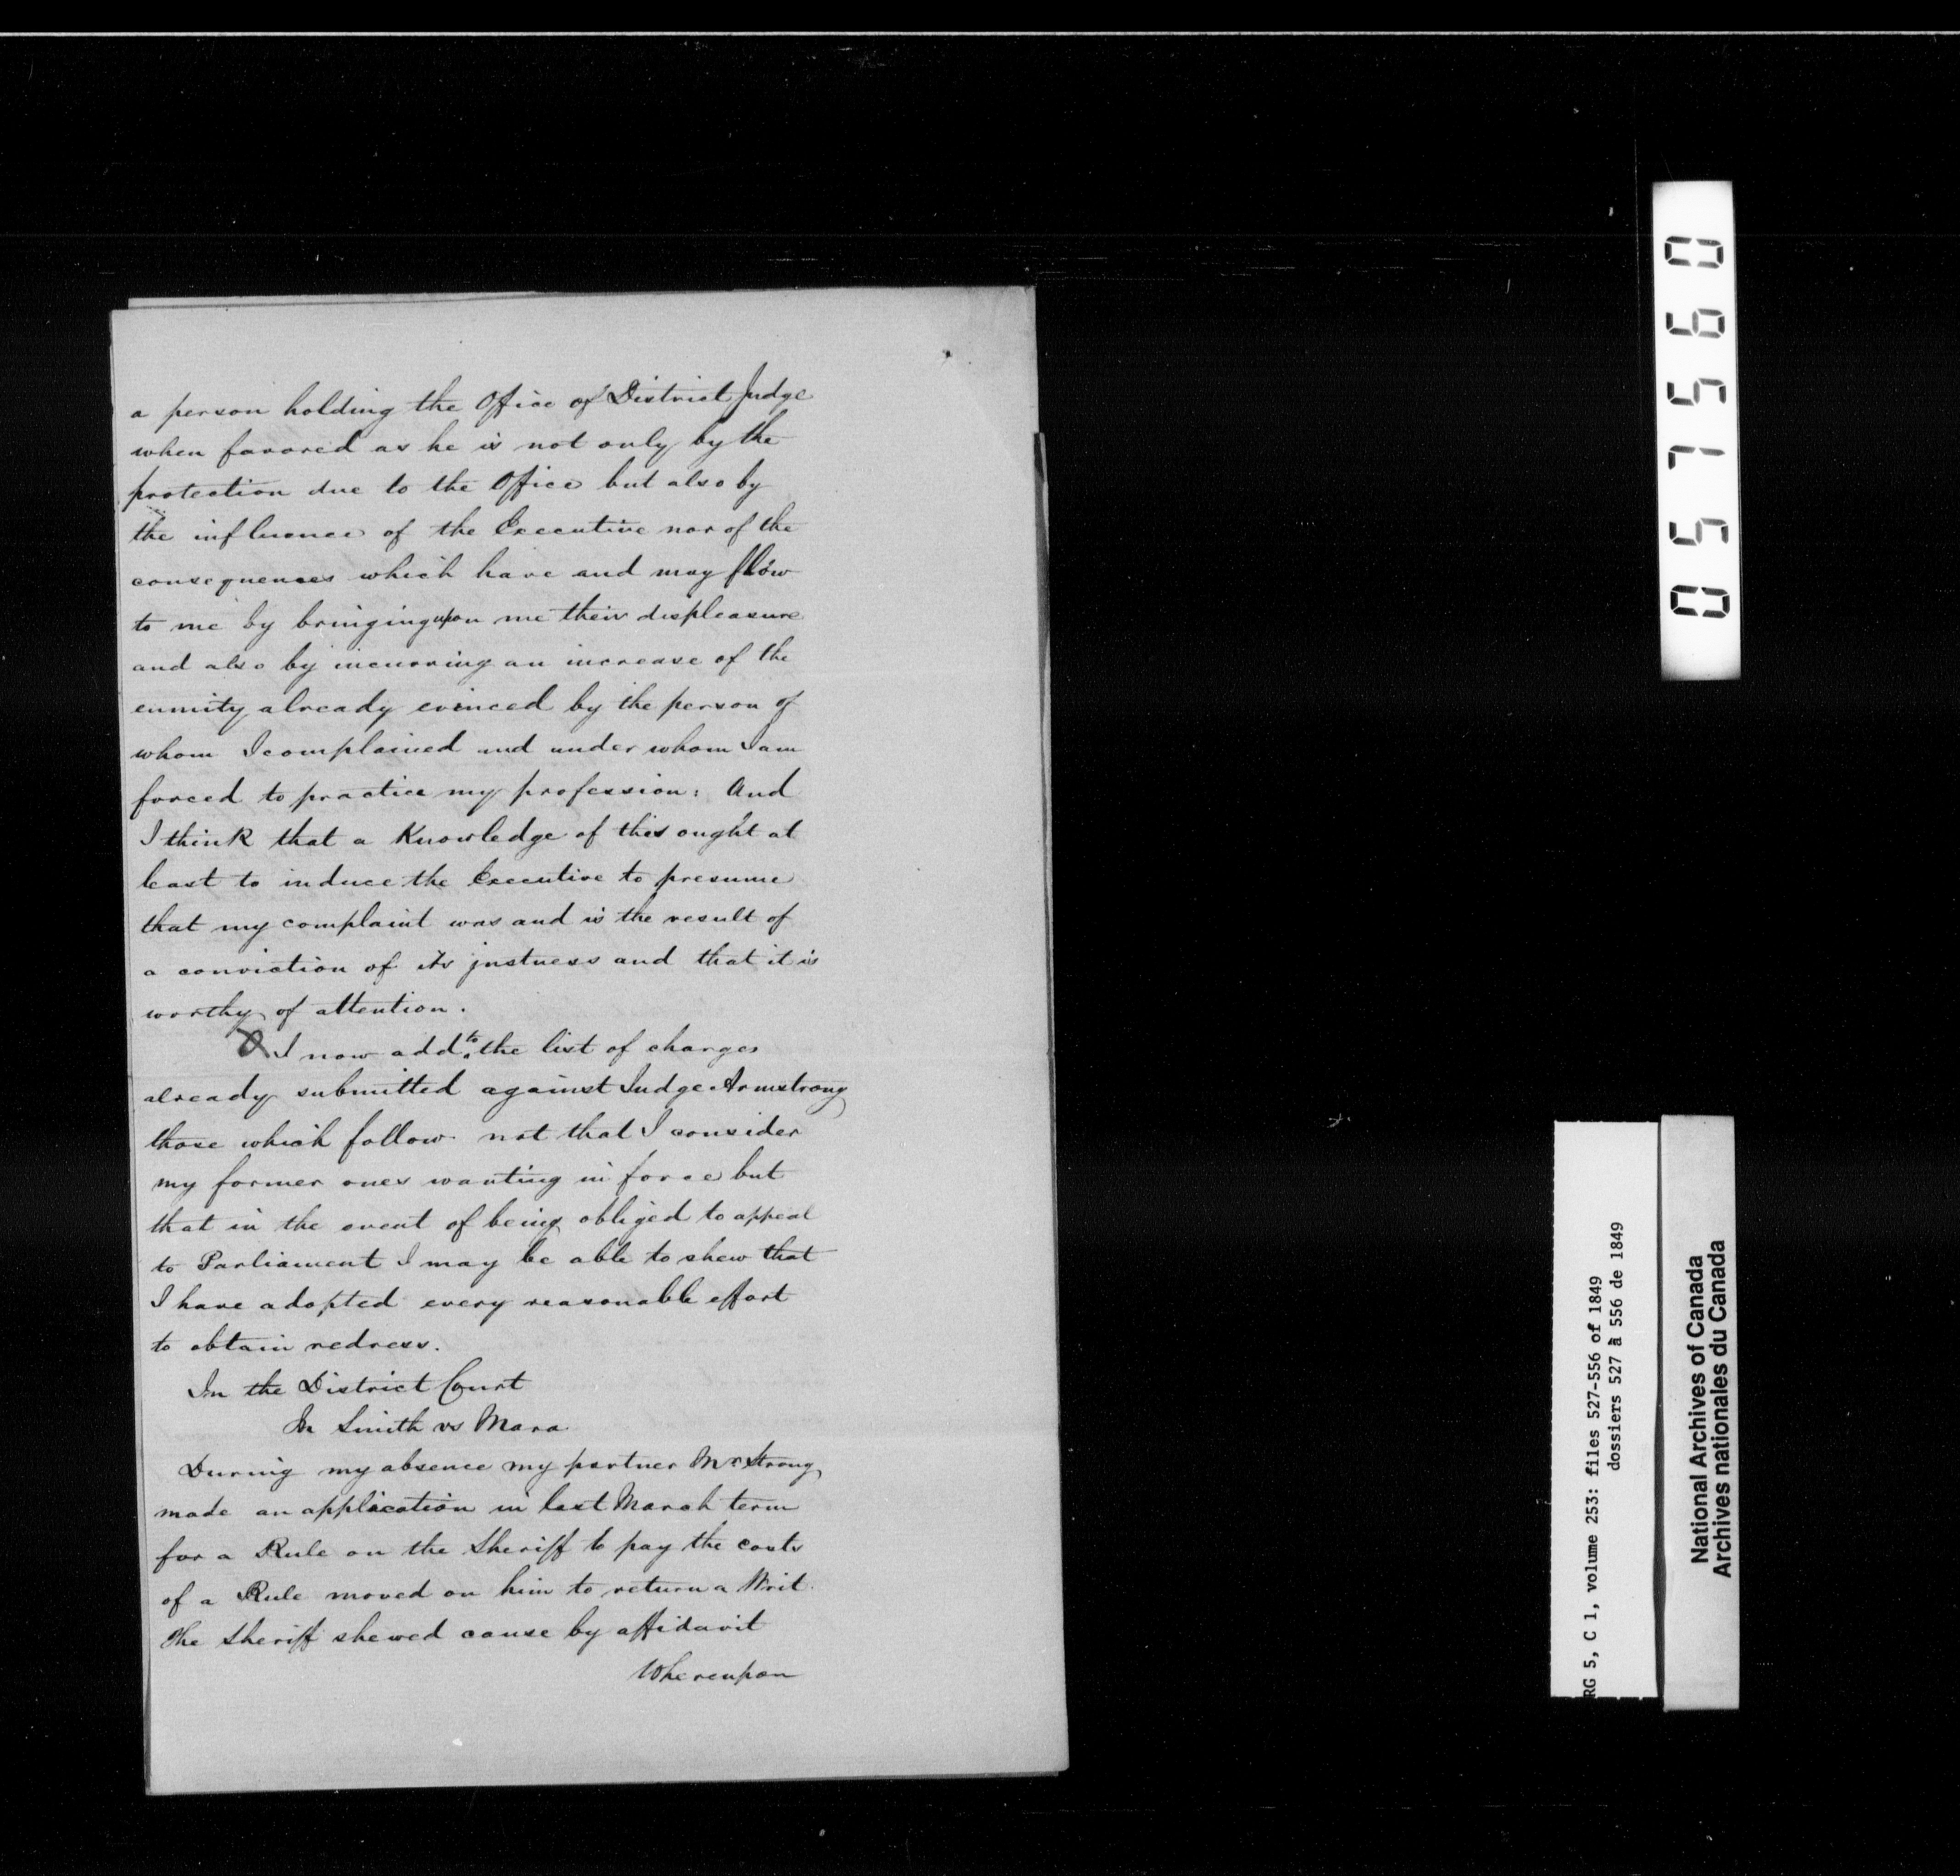 a person holding the Office of District Judge
when favored as he is not only by the
protection due to the Office but also by
the influence of the Executive nor of the
consequences which have and may flow
to me by bringing upon me their displeasure
and also by incurring an increase of the
enmity already evinced by the person of
whom I complained and under whom I am
forced to practice my profession: And
I think that a Knowledge of this ought at
least to induce the Executive to presume
that my complaint was and is the result of
a conviction of its justness and that it is
worthy of attention.
I now add to the list of charges
already submitted against Judge Armstrong
those which follow not that I consider
my former ones wanting in force but
that in the event of being obliged to appeal
to Parliament I may be able to shew that
I have adopted every reasonable effort
to obtain redress.
In the District Court
In Smith vs Mara
During my absence my partner Mr Strong
made an application in last March term
for a Rule on the Sheriff to pay the costs
of a Rule moved on him to return a Writ.
The Sheriff shewed cause by affidavit
Whereupon
057560
RG 5, C 1, volume 253: files 527-556 of 1849
dossiers 527 à 556 de 1849
National Archives of Canada
Archives nationales du Canada